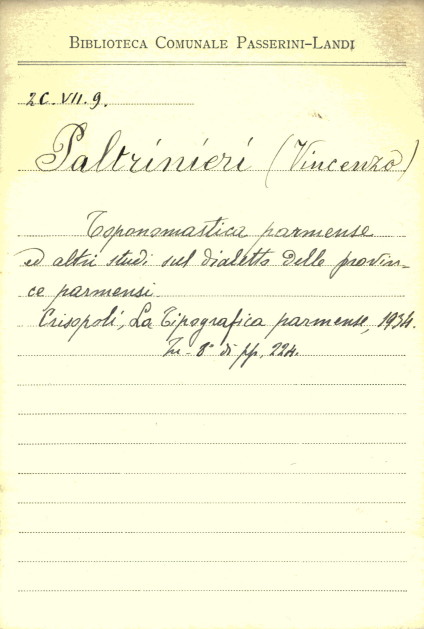 BIBLIOTECA COMUNALE PASSERINI-LANDI
2C.VII.9.
Paltrinieri (Vincenzo)
Toponomastica parmense
ed altri studi sul dialetto delle provin-
ce parmensi.
Crisopoli, La Tipografica parmense, 1934.
In-8° di pp. 224.